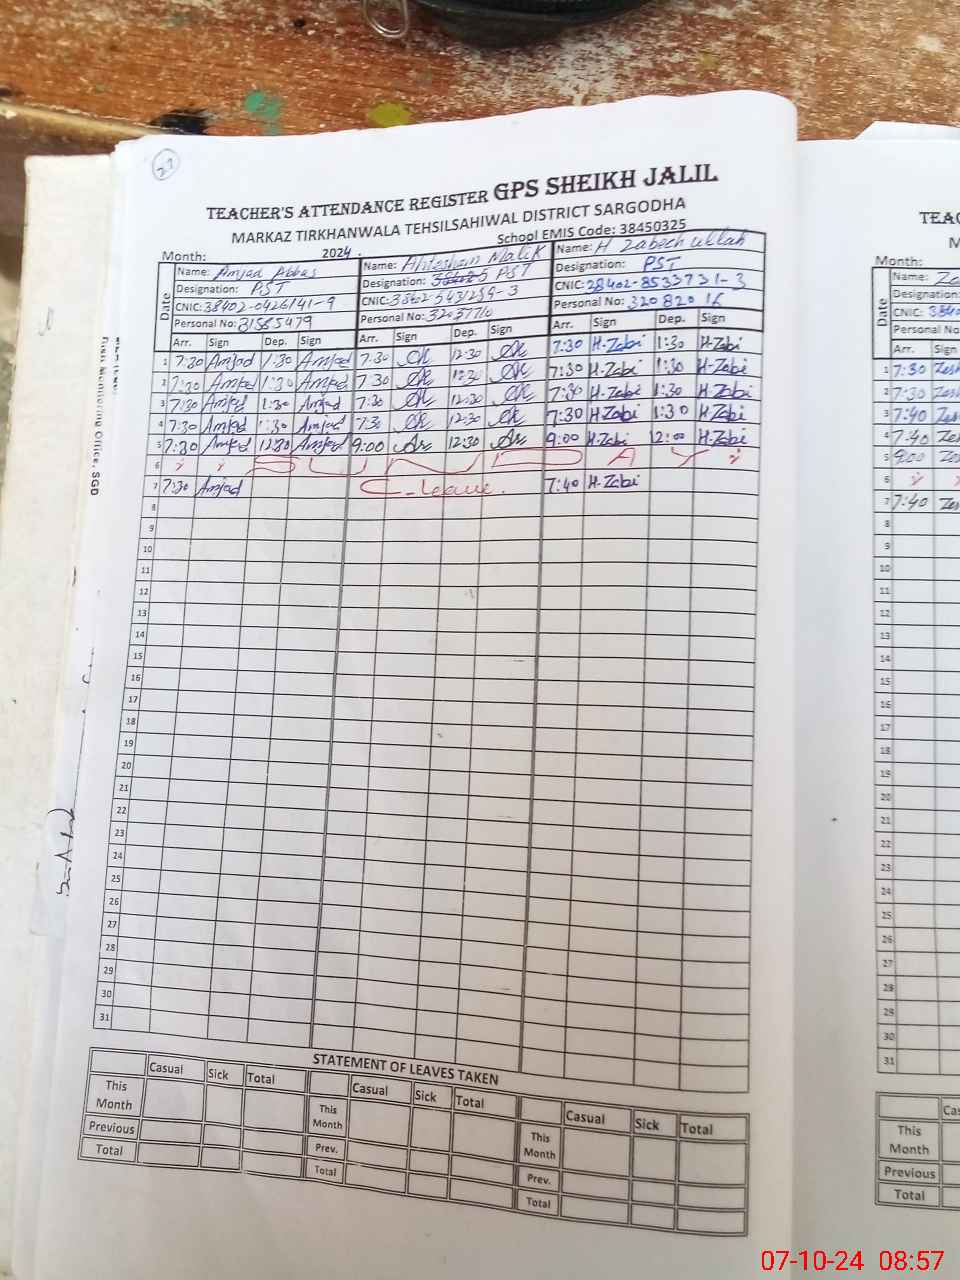 27
TEACHER'S ATTENDANCE REGISTER GPS SHEIKH JALIL
MARKAZ TIRKHANWALA TEHSILSAHIWAL DISTRICT SARGODHA
School EMIS Code: 38450325
Month: 2024
Date
Name: Amjad Abbas Name: Ahtesham Malik Name: H Zabech ullah
Designation: PST Designation: PST Designation: PST
CNIC: 38402-0426141-9 CNIC: 38402-5431259-3 CNIC: 28402-8533731-3
Personal No: 31565479 Personal No: Personal No: 32082016
Arr. Sign Dep. Sign Arr. Sign Dep. Sign Arr. Sign Dep. Sign
1 7:30 Amjad 1:30 Amjad 7:30 12:30 7:30 H-Zabi 1:30 H-Zabi
2 7:30 Amjad 1:30 Amjad 7:30 12:30 7:30 H-Zabi 1:30 H-Zabi
3 7:30 Amjad 1:30 Amjad 7:30 12:30 7:30 H-Zabi 1:30 H-Zabi
4 7:30 Amjad 1:30 Amjad 7:30 12:30 7:30 H-Zabi 1:30 H-Zabi
5 7:30 Amjad 12:30 Amjad 9:00 12:30 9:00 H-Zabi 12:00 H-Zabi
6 S U N D A Y
7 7:30 Amjad C-leave. 7:40 H-Zabi
8
9
10
11
12
13
14
15
16
17
18
19
20
21
22
23
24
25
26
27
28
29
30
31
STATEMENT OF LEAVES TAKEN
Casual Sick Total Casual Sick Total Casual Sick Total
This Month This Month This Month
Previous Prev. Prev.
Total Total Total
Monitoring Office, SGD
TEAC
M
Month:
Date
Name:
Designation:
CNIC:
Personal No:
Arr. Sign
1 7:30
2 7:30
3 7:40
4 7:40
5 9:00
6
7 7:40
8
9
10
11
12
13
14
15
16
17
18
19
20
21
22
23
24
25
26
27
28
29
30
31
Cas
This Month
Previous
Total
07-10-24 08:57